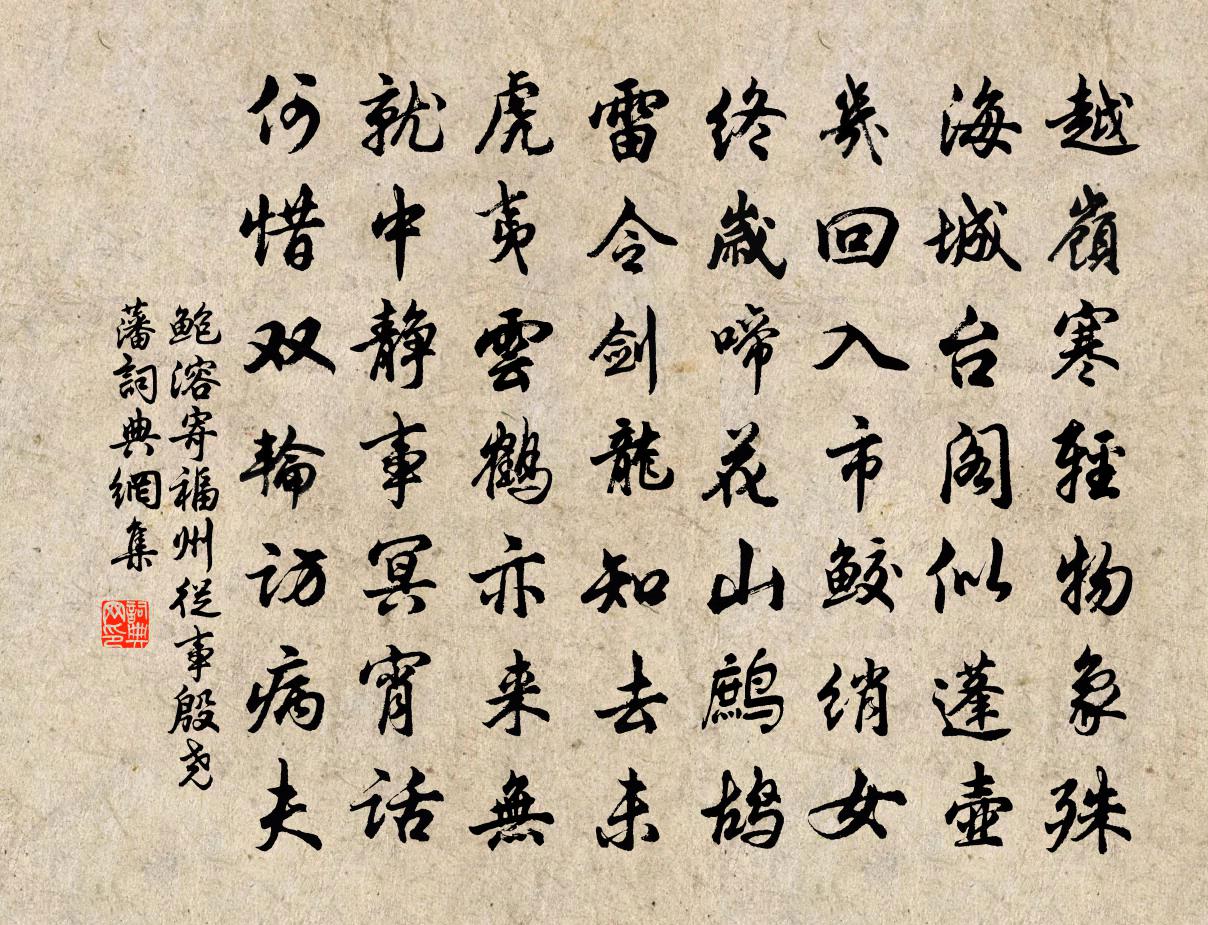 越嶺寒輕物象殊
海城台閣似蓬壺
幾回入市鮫綃女
終歲啼花山鷓鴣
雷令劍龍知去未
虎夷雲鶴亦来無
就中靜事冥宵話
何惜双輪访病夫
鲍溶寄福州從事殷尧
藩詞典網集
詞典
网印